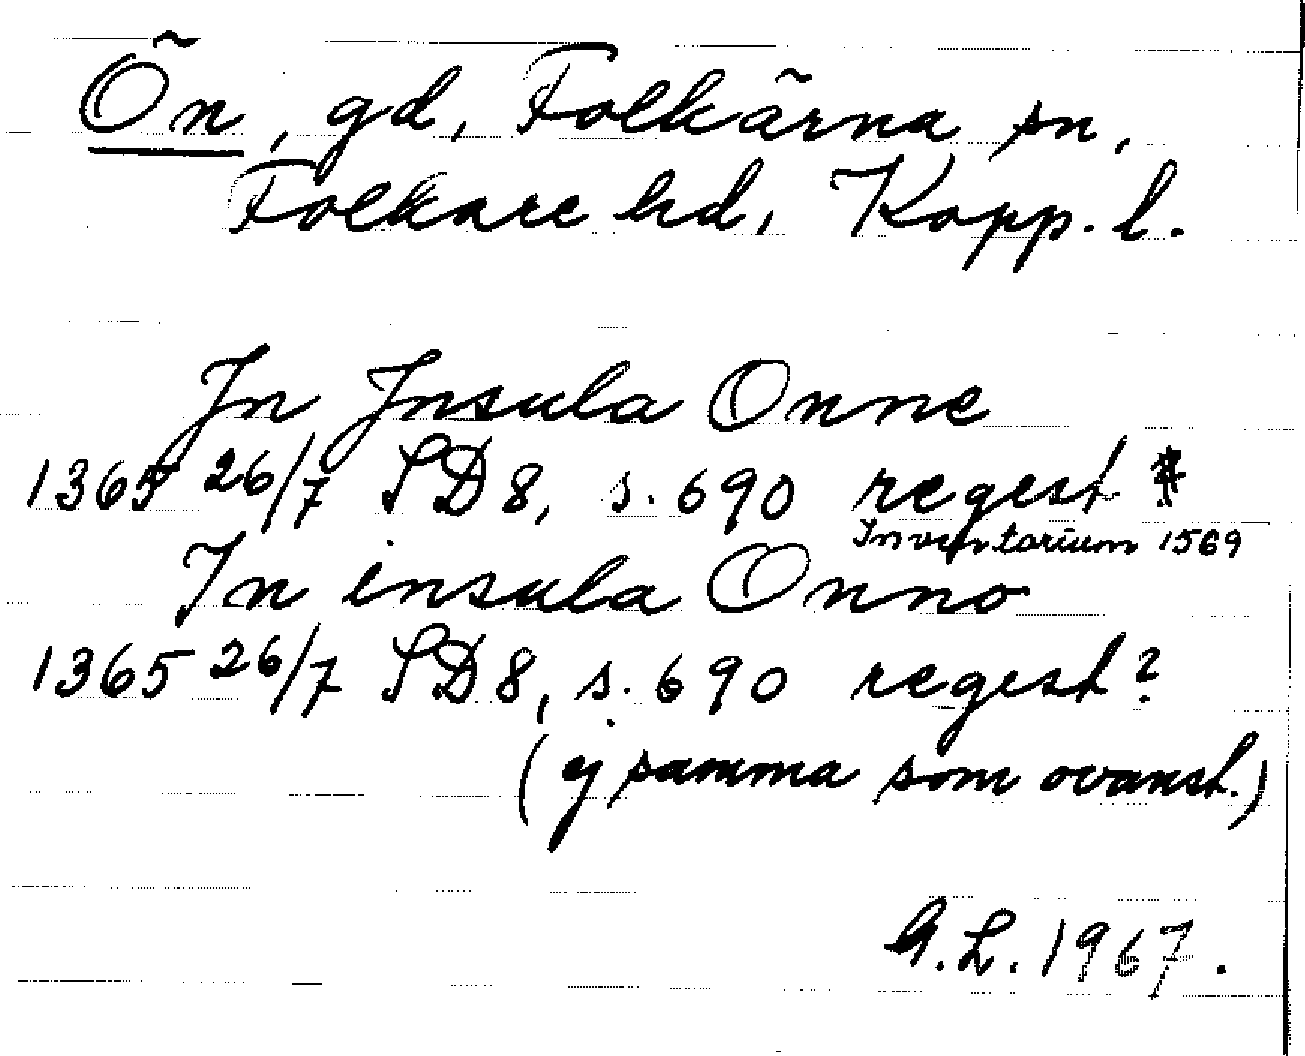 Ön, gd, Folkärna sn,
Folkare hd, Kopp. l.
In Insula Onne
1365 26/7 SD 8, s. 690 regest *
Inventarium 1569
In insula Onno
1365 26/7 SD 8, s. 690 regest?
(ej samma som ovanst.)
G.L. 1967.